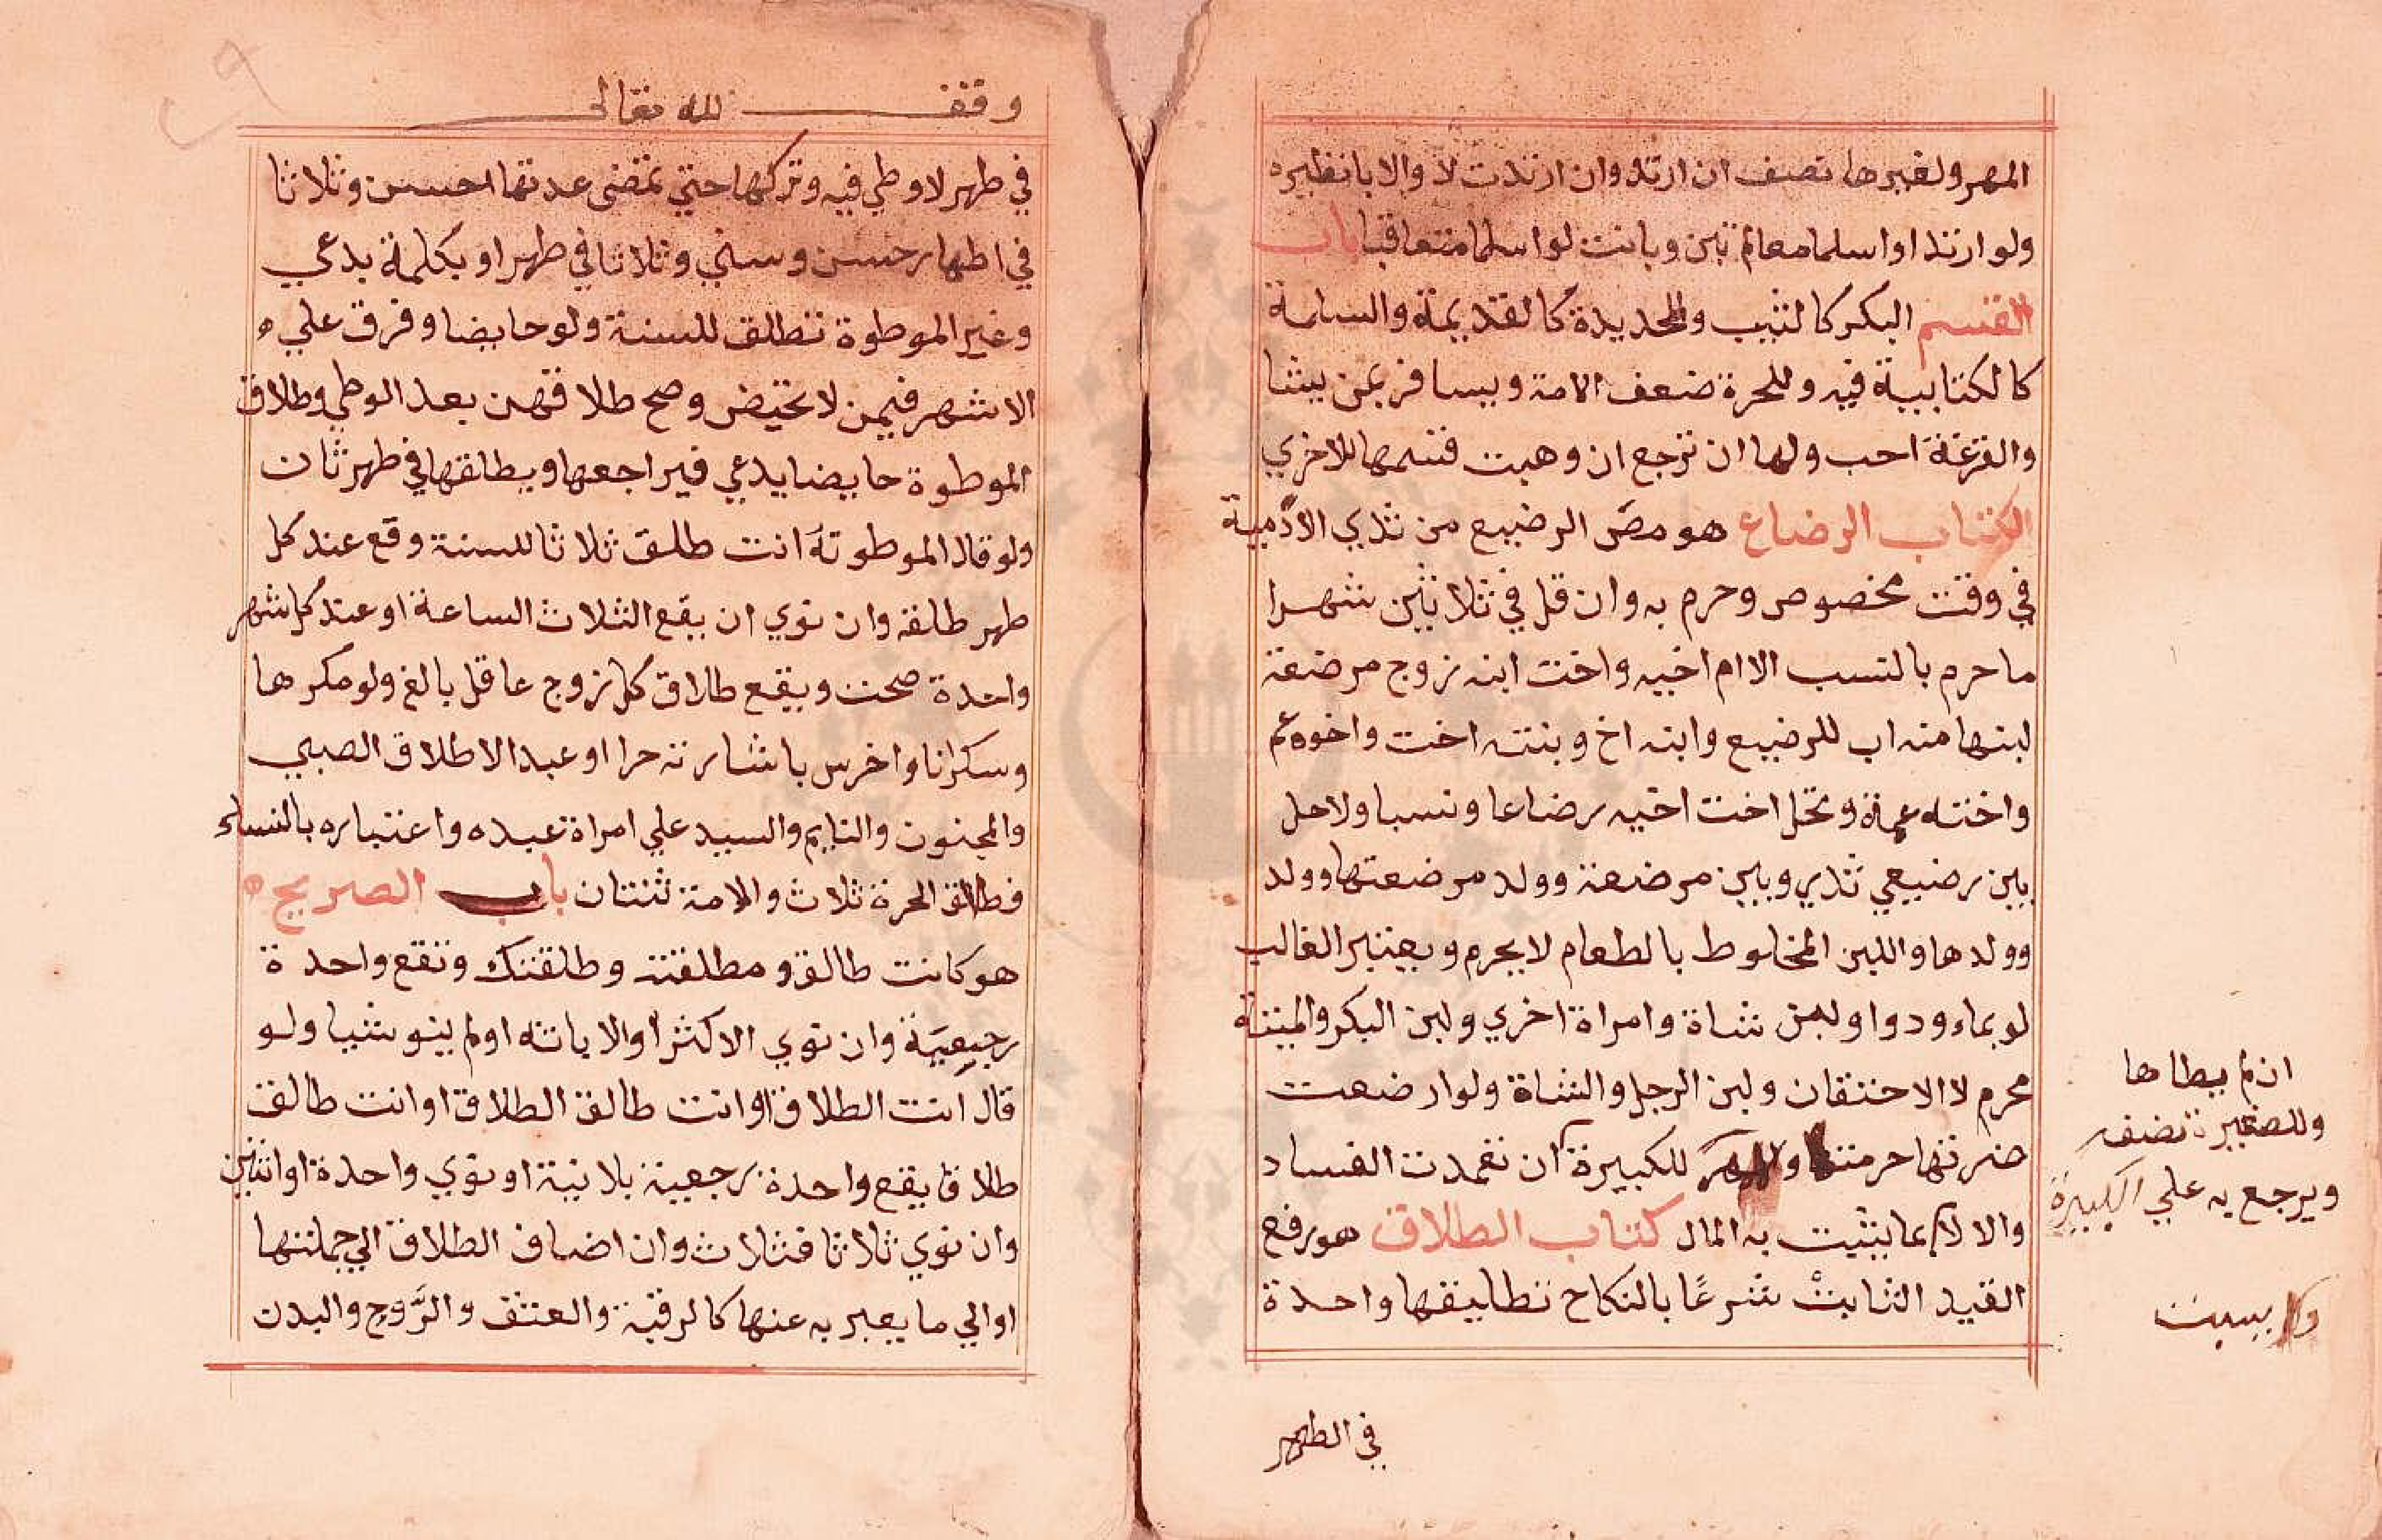 المهر ولغيرها نصف ان ارتد وان ارتدت لا والابا نظيره
ولو ارتدا او اسلما معا لم تبن وبانت لو اسلما متعاقبا باب
القسم البكر كالثيب والجديدة كالقديمة والمسلمة
كالكتابية فيه وللحرة ضعف الامة ويسافر بمن يشا
والقرعة احب ولها ان ترجع ان وهبت قسمها للاخري
الكتاب الرضاع هو مص الرضيع من ثدي الادمية
في وقت مخصوص وحرم به وان قل في ثلاثين شهرا
ما حرم بالنسب الا ام اخيه واخت ابنه زوج مرضعة
لبنها منه اب للرضيع وابنه اخ وبنته اخت واخوه عم
واخته عمة وتحل اخت اخيه رضاعا ونسبا ولا حل
بين رضيعي ثدي وبين مرضعة وولد مرضعتها وولد
وولدها واللبن المخلوط بالطعام لا يحرم ويعتبر الغالب
لو بماء ودوا ولبن شاة وامراة اخري ولبن البكر والميتة
محرم لا الاحتقان ولبن الرجل والشاة ولو ارضعت
ضرتها حرمتا ولا مهر للكبيرة ان تعمدت الفساد
والا لا بما يثبت به المال كتاب الطلاق هو رفع
القيد الثابت شرعًا بالنكاح تطليقها واحدة
ان لم يطاها
وللصغيرة نصف
ويرجع به علي الكبيرة
في الطهر
وقف لله تعالى
في طهر لا وطي فيه وتركها حتي تمضي عدتها احسن وثلاثا
في اطهار حسن وسني وثلاثا في طهر او بكلمة بدعي
وغير الموطوة تطلق للسنة ولو حايضا وفرق علي
الاشهر فيمن لا تحيض وصح طلاقهن بعد الوطي وطلاق
الموطوة حايضا بدعي فيراجعها ويطلقها في طهر ثان
ولو قال الموطوته انت طلق ثلاثا للسنة وقع عند كل
طهر طلقة وان نوي ان يقع الثلاث الساعة او عند كل شهر
واحدة صحت ويقع طلاق كل زوج عاقل بالغ ولو مكرها
وسكرانا واخرس باشارته حرا او عبدا لا طلاق الصبي
والمجنون والنايم والسيد علي امراة عبده واعتباره بالنساء
فطلاق الحرة ثلاث والامة ثنتان باب الصريح
هو كانت طالق ومطلقة وطلقتك وتقع واحدة
رجعية وان نوي الاكثر او الابانة او لم ينو شيا ولو
قال انت الطلاق او انت طالق الطلاق او انت طالق
طلاقا يقع واحدة رجعية بلا نية او نوي واحدة او اثنتين
وان نوي ثلاثا فثلاث وان اضاف الطلاق الي جملتها
او الي ما يعبر به عنها كالرقبة والعتق والرَّوح والبدن